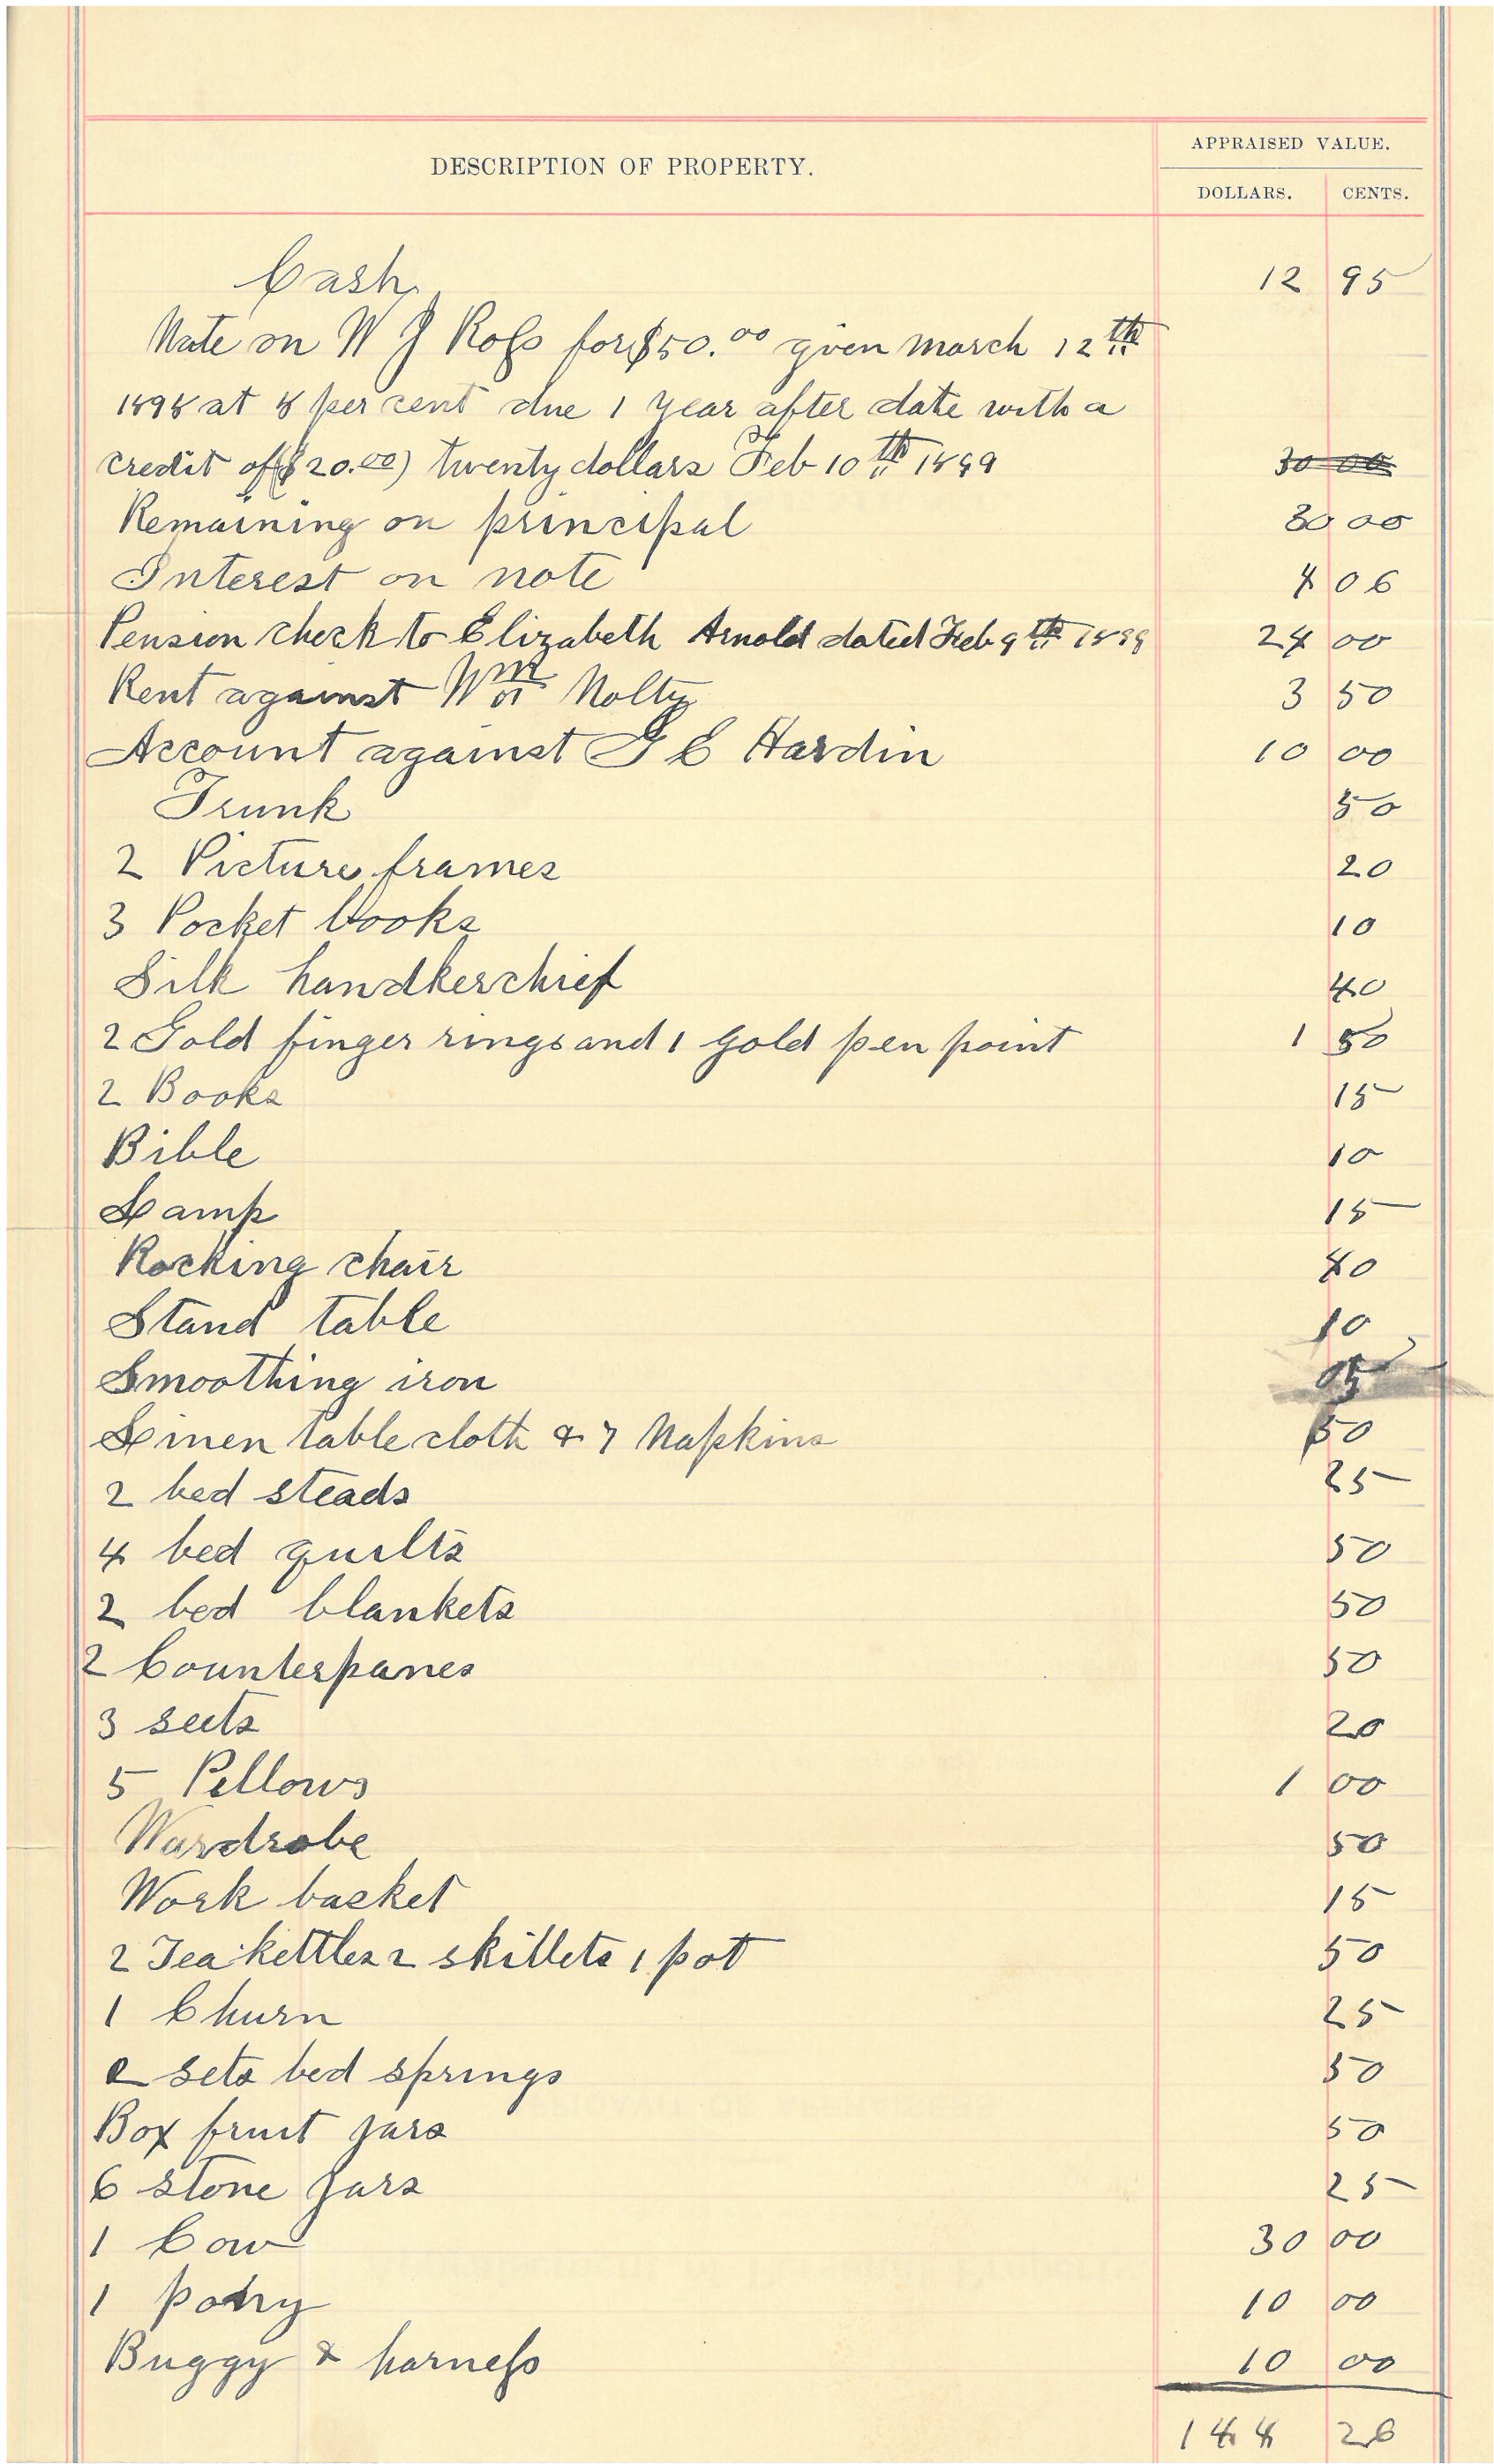 DESCRIPTION OF PROPERTY.
APPRAISED VALUE.
DOLLARS. CENTS.
Cash 12 95
Note on W J Ross for $50.00 given march 12th
1898 at 8 per cent due 1 year after date with a
credit of ($20.00) twenty dollars Feb 10th 1899 30 00
Remaining on principal 30 00
Interest on note 4 06
Pension check to Elizabeth Arnold dated Feb 9th 1899 24 00
Rent against Wm Nolty 3 50
Account against G C Hardin 10 00
Trunk 50
2 Picture frames 20
3 Pocket books 10
Silk handkerchief 40
2 Gold finger rings and 1 gold pen point 1 50
2 Books 15
Bible 10
Lamp 15
Rocking chair 40
Stand table 10
Smoothing iron 05
Linen table cloth & 7 Napkins 50
2 bed steads 25
4 bed quilts 50
2 bed blankets 50
2 Counterpanes 50
3 seets 20
5 Pellows 1 00
Wardrobe 50
Work basket 15
2 Tea kettles 2 skillets 1 pot 50
1 Churn 25
2 sets bed springs 50
Box fruit jars 50
6 stone jars 25
1 Cow 30 00
1 pony 10 00
Buggy & harness 10 00
144 26